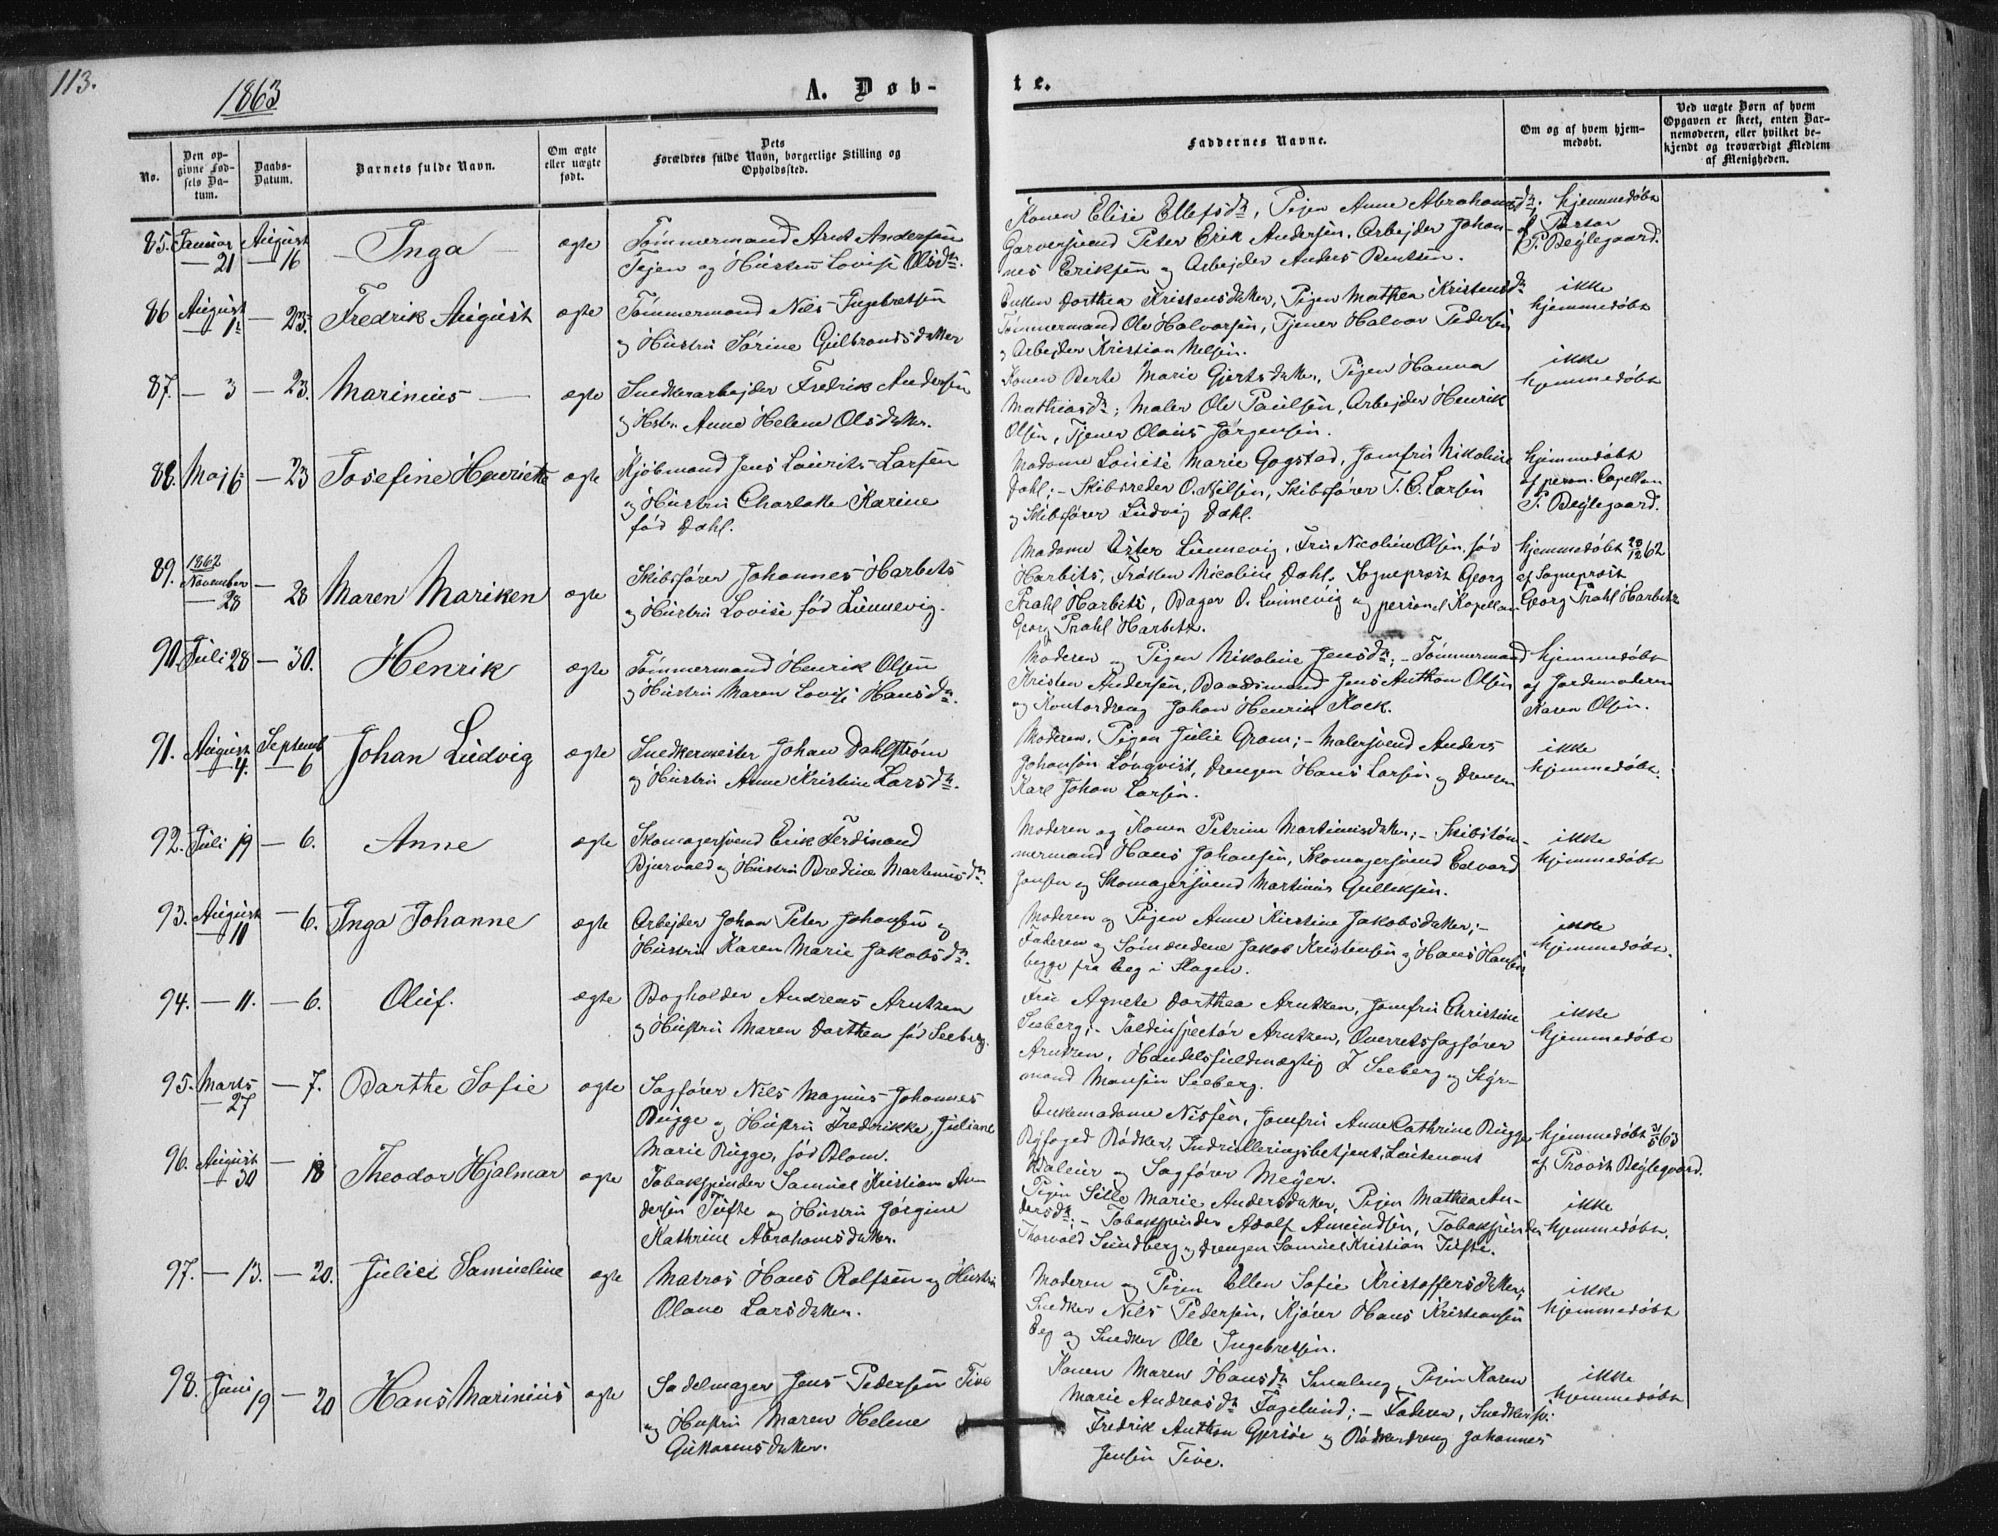 113.
1863
A. Døb-
No.
Den op-
givne Fød-
sels Da-
tum.
Daabs-
Datum.
Barnets fulde Navn.
Om ægte
eller uægte
født.
Dets
Forældres fulde Navn, borgerlige Stilling og
Opholdssted.
85. Januar 21 August 16 Inga ægte
Tømmermand Arnt Andersen
Tejen og Hustru Lovise Olsdtr.
86 August 1 — 23. Fredrik August ægte
Tømmermand Nils Ingebretsen
og Hustru Sørine Gulbrandsdatter
87. — 3 — 23. Marinius ægte
Snedkerarbejder Fredrik Andersen
og Hstr. Anne Helene Olsdatter.
88. Maj 16 — 23 Josefine Henriette ægte
Kjøbmand Jens Laurits Larsen
og Hustru Charlotte Karine
fød Dahl.
89. 1862 November 28 — 28 Maren Mariken ægte
Skibsfører Johannes Harbits
og Hustru Lovise fød Linnevig.
90. Juli 28 — 30. Henrik ægte
Tømmermand Henrik Olsen
og Hustru Maren Lovise Hansdtr.
91. August 4. Septemb 6 Johan Ludvig ægte
Snedkermester Johan Dahlstrøm
og Hustru Anne Kristine Larsdtr.
92. Juli 19 — 6. Anne ægte
Skomagersvend Erik Ferdinand
Bjurvald og Hustru Bredine Martinusdtr.
93. August 10 — 6. Inga Johanne ægte
Arbejder Johan Peter Johansen og
Hustru Karen Marie Jakobsdtr.
94. — 11. — 6. Oluf. ægte
Bogholder Andreas Arntzen
og Hustru Maren Dorthea fød Seeberg.
95. Marts 27 — 7. Barthe Sofie ægte
Sagfører Nils Magnus Johannes
Bugge og Hustru Fredrikke Juliane
Marie Bugge, fød Blom.
96. August 30 — 18 Theodor Hjalmar ægte
Tobakspinder Samuel Kristian An-
dersen Tufte og Hustru Jørgine
Kathrine Abrahamsdatter.
97. — 13. — 20. Julie Samueline ægte
Matros Hans Rolfsen og Hustru
Olane Larsdatter.
98. Juni 19 — 20 Hans Marinius ægte
Sadelmager Jens Pedersen Tive
og Hustru Maren Helene
Guttormsdatter.
te.
Faddernes Navne.
Om og af hvem hjem-
medøbt.
Ved uægte Børn af hvem
Opgaven er skeet, enten Bar-
nemoderen, eller hvilket be-
kjendt og troværdigt Medlem
af Menigheden.
Konen Elise Ellefsdtr, Pigen Anne Abrahamsdtr. hjemmedøbt
Garversvend Peter Erik Andersen, Arbejder Johan- af Pastor
nes Eriksen og Arbejder Anders Bentsen. P. Bejlegaard.
Enken Dorthea Kristensdatter, Pigen Mathea Kristensdtr ikke
Tømmermand Ole Halvorsen, Tjener Halvor Pedersen hjemmedøbt
og Arbejder Kristian Nelsen.
Konen Berte Marie Gjertsdatter, Pigen Hanna ikke
Mathiasdtr; Maler Ole Paulsen, Arbejder Henrik hjemmedøbt
Olsen, Tjener Olaus Jørgensen.
Madame Louise Marie Gogstad, Jomfru Nikoline hjemmedøbt
Dahl; — Skibsreder O. Nilsen, Skibsfører T. C. Larsen af person. Capellan
og Skibsfører Ludvig Dahl. P. Bejlegaard.
Madame Ester Linnevig, Fru Nicoline Olsen fød hjemmedøbt 28/12 62
Harbits, Frøken Nicoline Dahl. Sogneprest Georg af Sogneprest
Prahl Harbits, Bager O. Linnevig og personel Kapellan Georg Prahl Harbitz
Georg Prahl Harbitz.
Moderen og Pigen Nikoline Jensdtr; — Tømmermand hjemmedøbt
Kristen Andersen, Baadsmand Jens Anthon Olsen af Jordemoderen
og Kontordreng Johan Henrik Kock. Karen Olsen.
Moderen, Pigen Julie Gram; — Malersvend Anders ikke
Johansen Løvqvist, Drengen Hans Larsen og Drengen hjemmedøbt.
Karl Johan Larsen.
Moderen og Konen Petrine Martinusdatter; — Skibstøm- ikke
mermand Hans Johansen, Skomagersvend Edvard hjemmedøbt
Jansen og Skomagersvend Martinus Gulliksen.
Moderen og Pigen Anne Kirstine Jakobsdatter; — ikke
Faderen og Sømændene Jakob Kristensen og Hans Hansen hjemmedøbt.
begge fra Eeg i Slagen.
Fru Agnete Dorthea Arntzen, Jomfru Christine ikke
Seeberg; — Toldinspectør Arntzen, Overretssagfører hjemmedøbt
Arntzen, Handelsfuldmægtig J. Seeberg og Styr-
mand Mansen Seeberg.
Enkemadame Nissen, Jomfru Anne Cathrine Bugge hjemmedøbt 31/5 63
Byfoged Rødker, Indrulleringsbetjent Løitenant af Provst Bejlegaard.
Kaleur og Sagfører Meyer.
Pigen Sille Marie Andersdatter, Pigen Mathea An- ikke
dersdtr; — Tobakspinder Adolf Amundsen, Tobakspinder hjemmedøbt.
Thorvald Sundberg og Drengen Samuel Kristian Tufte.
Moderen og Pigen Ellen Sofie Kristoffersdatter; ikke
Snedker Nils Pedersen, Kjører Hans Kristiansen hjemmedøbt
Eeg og Snedker Ole Ingebretsen.
Konen Maren Hansdtr Smaleng, Pigen Karen ikke
Marie Andreasdtr Fagelund; — Faderen, Snedkersv: hjemmedøbt
Fredrik Anthon Gjersøe og Bødkerdreng Johannes
Jensen Tive.